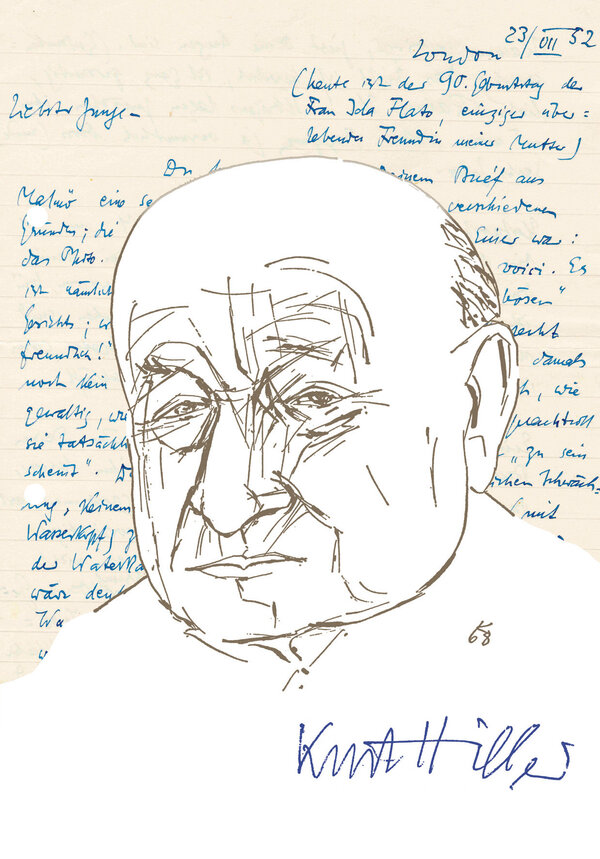 London 23/VII 52
(heute ist der 90. Geburtstag der
Frau Ida Flato, einziger über=
lebender Freundin meiner Mutter)
Liebster Junge –
Du
deinem Brief aus
Malmö eine se
verschiedenen
Gründen; die
Einer war:
das Photo.
voici. Es
ist nämlich
bösen"
Gesicht;
recht
freundlich!"
damals
noch kein
, wie
gewaltig, wie
machtvoll
sie tatsächli
„zu sein
scheint".
schwäch=
ung, keinem
mit
Wasserkopf)
der Waterka
wäre
Wa
68
Kurt Hiller